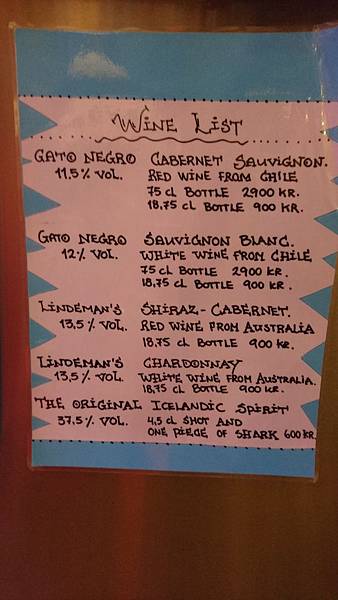 WINE LIST
GATO NEGRO CABERNET SAUVIGNON.
11,5% VOL. RED WINE FROM CHILE
75 CL BOTTLE 2900 KR.
18,75 CL BOTTLE 900 KR.
GATO NEGRO SAUVIGNON BLANC.
12% VOL. WHITE WINE FROM CHILE
75 CL BOTTLE 2900 KR.
18,75 CL BOTTLE 900 KR.
LINDEMAN'S SHIRAZ - CABERNET.
13,5% VOL. RED WINE FROM AUSTRALIA
18,75 CL BOTTLE 900 KR.
LINDEMAN'S CHARDONNAY
13,5% VOL. WHITE WINE FROM AUSTRALIA.
18,75 CL BOTTLE 900 KR.
THE ORIGINAL ICELANDIC SPIRIT
37,5% VOL. 4,5 CL SHOT AND
ONE PIECE OF SHARK 600 KR.